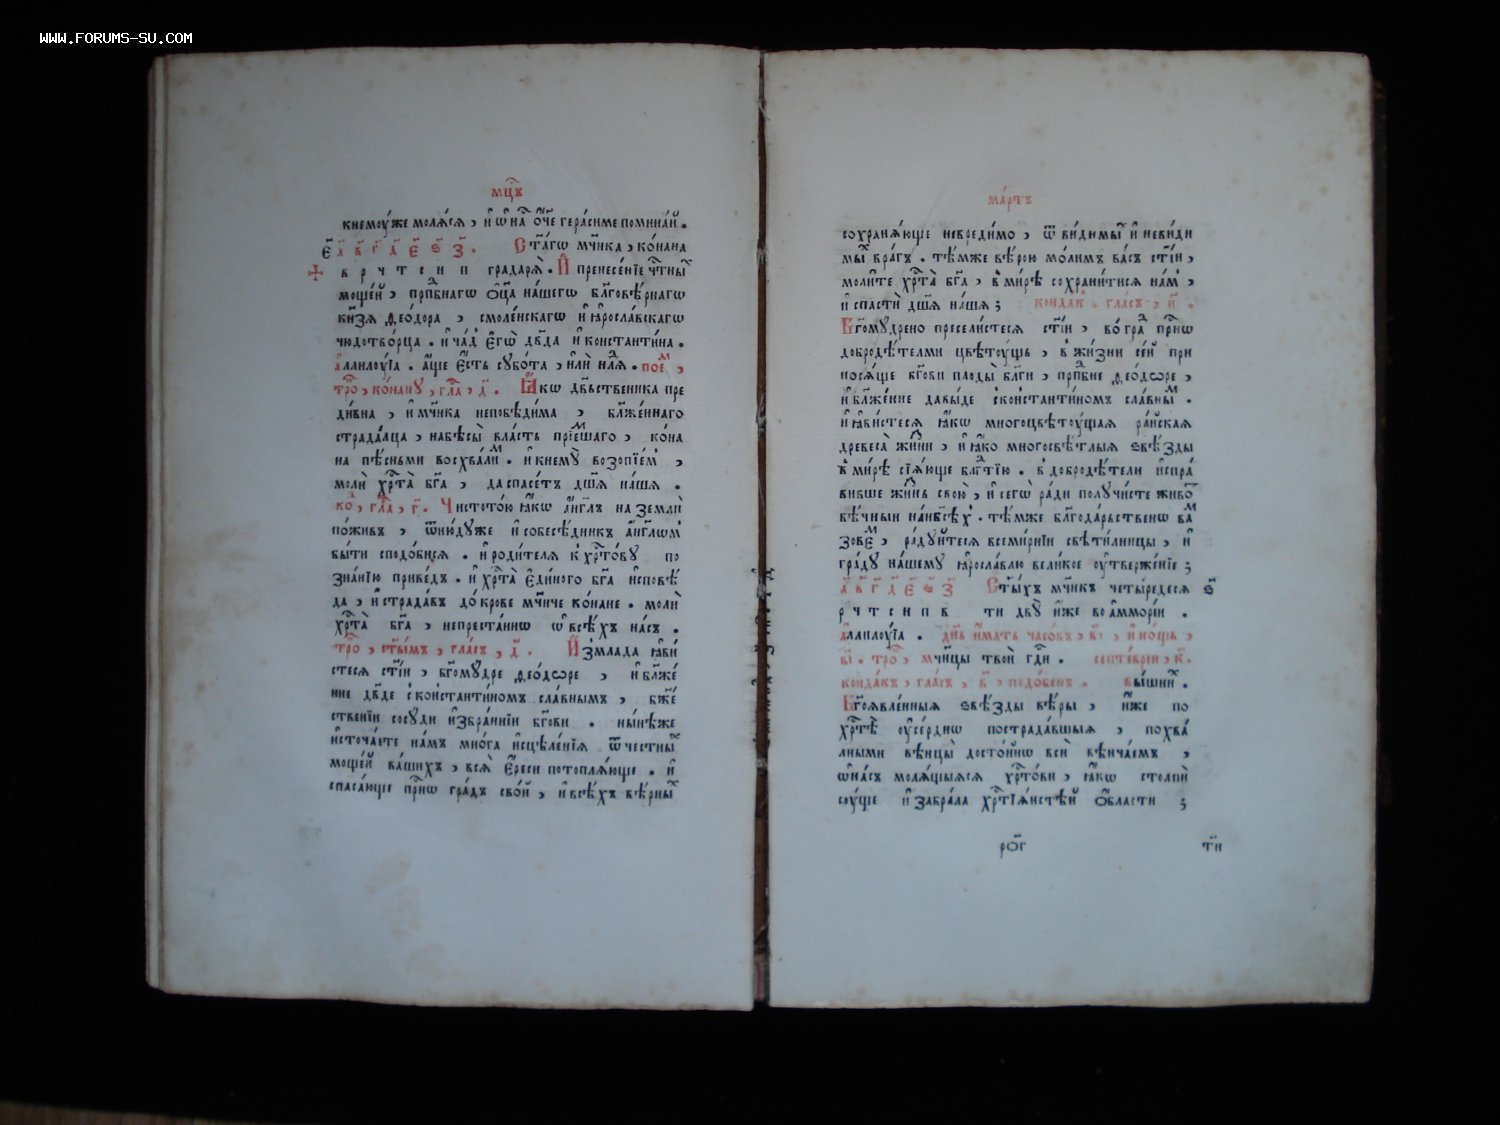 WWW.FORUMS-SU.COM
мцⷭ҇ъ
кнемꙋ́же молѧ́сѧ, и҆ ѡ҆ на́ⷭ ѻ҆́ч҃е гера́симе помина́й.
є҃ а҃ в҃ г҃ д҃ є҃ ѕ҃ з҃. Ст҃а́гѡ мч҃ника, ко́нана
в р ч т с н п градарѧ̀. И҆ пренесе́нїе чⷭ҇тны́ⷯ
моще́й, прп҃бнагѡ ѻ҆ц҃а̀ на́шегѡ бл҃гове́рнагѡ
кн҃зѧ ѳео́дора, смоле́нскагѡ и҆ ꙗ҆росла́вскагѡ
чюдотво́рца. и҆ ча́дъ є҆гѡ̀ дв҃да и҆ константи́на.
а҆ллилꙋ́їа. а҆́ще є҆́сть сꙋбо́та, и҆лѝ нлⷣѧ. поє́ⷨ,
тро́ⷫ, ко́нанꙋ, гла́ⷭ, д҃. Ꙗ҆́кѡ дв҃ственика пре
ди́вна, и҆ мч҃ника непобѣди́ма, бл҃же́ннаго
страда́лца, на бѣ́сы̀ вла́сть прїе́мшаго, ко́на
на пѣ́сньми восхва́лиⷨ. и҆ к немꙋ̀ возопїе́мъ,
молѝ хрⷭ҇та̀ бг҃а, да спасе́тъ дш҃ѧ на́шѧ.
ко́ⷣ, гла́ⷭ, г҃. Чистото́ю ꙗ҆́кѡ а҆́нг҃лъ на землѝ
пожи́въ, ѿню́дꙋже и҆ собесѣ́дникъ а҆́нг҃лѡмъ
бы́ти сподо́бисѧ. и҆ роди́телѧ к хрⷭ҇то́вꙋ по
зна́нїю приве́дъ. и҆ хрⷭ҇та̀ є҆ди́ного бг҃а и҆сповѣ́
да, и҆ страда́въ до кро́ве мч҃ниче ко́нане. молѝ
хрⷭ҇та̀ бг҃а, непреста́ннѡ ѡ҆ всѣ́хъ на́съ.
тро́ⷫ, ст҃ы́мъ, гла́съ, д҃. И҆змлада ꙗ҆ви́
стесѧ ст҃і́и, бг҃омꙋ́дре ѳео́дѡре, и҆ бл҃же́
нне дв҃де с константи́номъ сла́внымъ, бж҃е́
ственїи сосꙋ́ди и҆збра́ннїи бг҃ови. ны́нѣже
и҆сточа́ете на́мъ мно́га и҆сцѣле́нїѧ ѿ честны́ⷯ
моще́й ва́шихъ, всѧ̀ є҆́реси потоплѧ́юще. и҆
спаса́юще при́снѡ гра́дъ сво́й, и҆ всѣ́хъ вѣ́рныⷯ
ма́ртъ
сохранѧ́юще невреди́мо, ѿ ви́димыⷯ и҆ неви́ди
мыⷯ вра́гъ. тѣ́мже вѣ́рою мо́лимъ ва́съ ст҃і́и,
моли́те хрⷭ҇та̀ бг҃а, в ми́рѣ сохрани́тисѧ на́м,
и҆ спастѝ дш҃ѧ на́шѧ; конда́к. гла́съ, и҃.
Бг҃омꙋ́дрено пресели́стесѧ ст҃і́и, во гра́ⷣ при́снѡ
добродѣ́телми цвѣтꙋ́щь, в жи́зни се́й при
носѧ́ще бг҃ови плоды̀ бл҃ги, прп҃бне ѳео́дѡре,
и҆ бл҃же́нне давы́де с константи́номъ сла́вныⷨ.
и҆ ꙗ҆ви́стесѧ ꙗ҆́кѡ многоцвѣтꙋ́щаѧ ра́йскаѧ
древеса̀ жи́зни, и҆ ꙗ҆́ко многосвѣ́тлыѧ ѕвѣ́зды
в ми́рѣ сїѧ́юще блгⷣтїю. в добродѣ́тели и҆спра́
вивше жи́знь свою̀, и҆ сегѡ̀ ра́ди полꙋчи́сте живо́ⷮ
вѣ́чныи на нб҃сѣ́хъ. тѣ́мже бл҃года́рьственѡ ва́ⷨ
зове́ⷨ, ра́дꙋйтесѧ всеми́рнїи свѣти́лницы, и҆
гра́дꙋ на́шемꙋ ꙗ҆росла́влю вели́кое ᲂу҆твержє́нїе;
а҃ в҃ г҃ д҃ є҃ ѕ҃ з҃ Ст҃ы́хъ мч҃никъ четы́редесѧ ѕ҃
р ч т с н п в ти двꙋ̀ и҆́же во а҆ммо́рїи.
а҆ллилꙋ́їа. дн҃ь и҆́мать часо́въ, в҃і, и҆ но́щь,
в҃і. тро́ⷫ, мч҃ницы твоѝ гд҃и. септе́врїи, к҃.
конда́къ, гла́съ, в҃, подо́бенъ. вы́шниⷯ.
Бг҃оѧвле́нныѧ ѕвѣ́зды вѣ́ры, и҆́же по
хрⷭ҇тѣ̀ ᲂу҆се́рднѡ пострада́вшыѧ, похва́
лными вѣнцы̀ досто́йнѡ всѝ вѣнча́емъ,
ѡ҆ на́съ молѧ́щыѧсѧ хрⷭ҇то́ви, ꙗ҆́кѡ столпѝ
сꙋ́ще и҆ забра́ла хрⷭ҇тїѧ́нстѣй ѻ҆́бласти;
ро҃г
ти